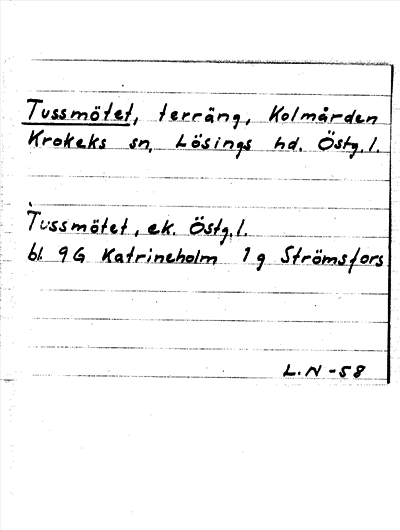 Tussmötet, terräng, Kolmården
Krokeks sn, Lösings hd. Östg.l.
Tussmötet, ek. Östg.l.
bl. 9G Katrineholm 1g Strömsfors
L.N -58